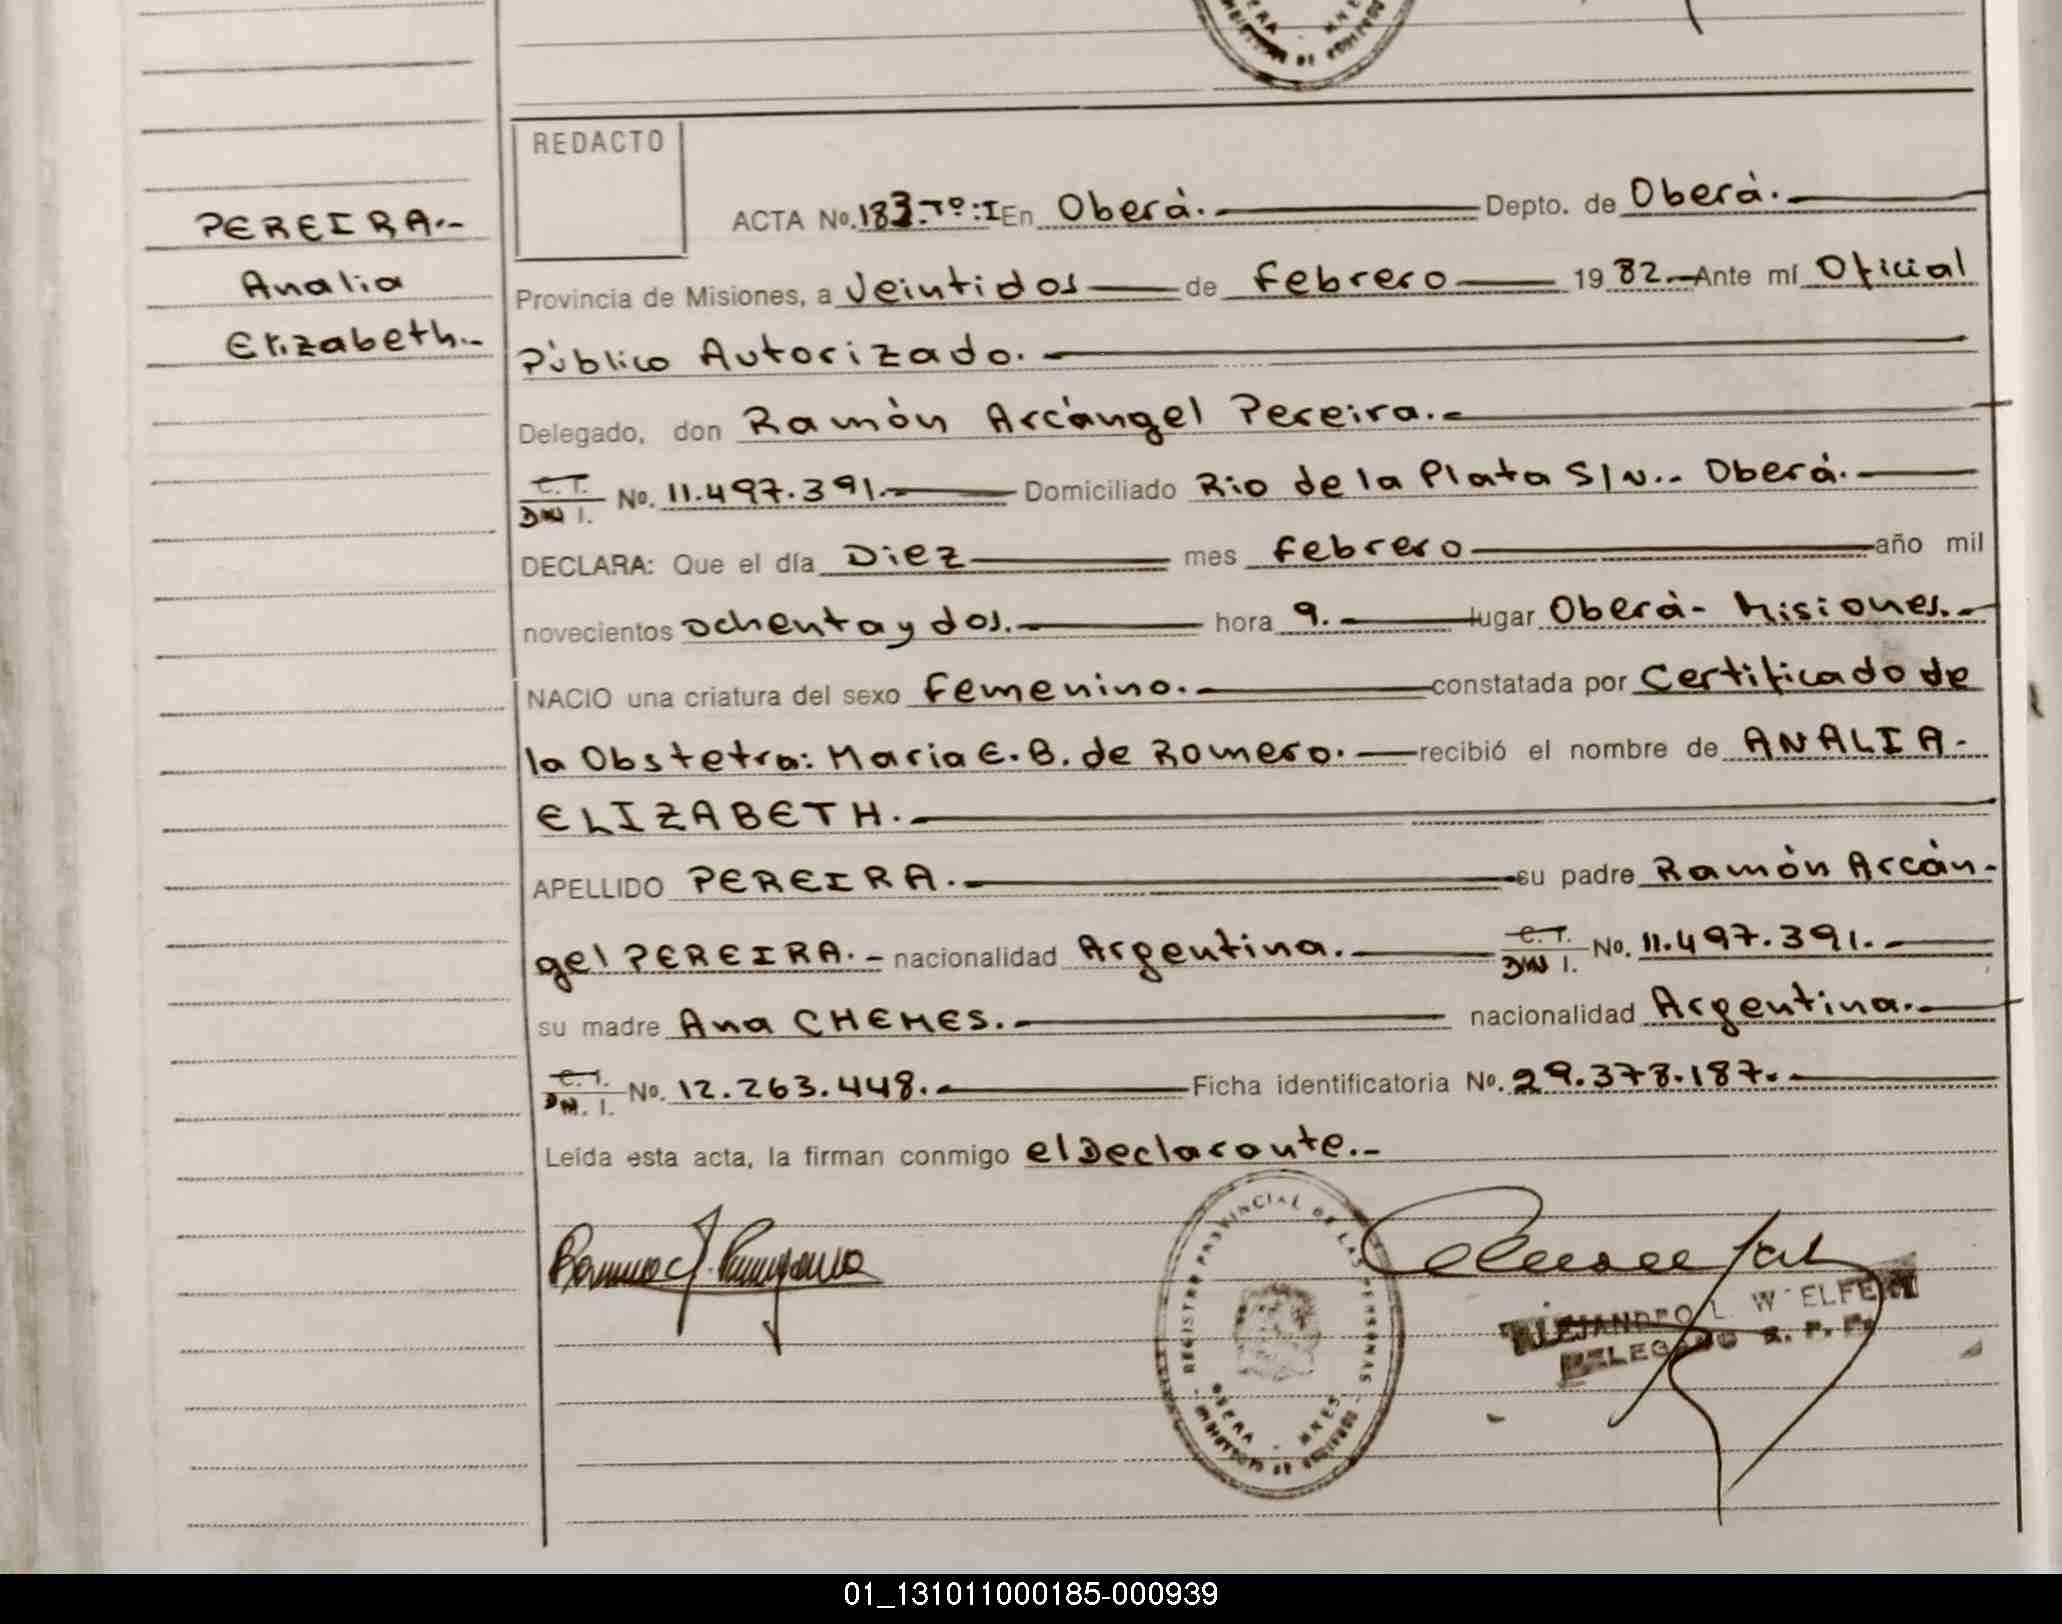 REDACTO
ACTA No. 183.Tº:I En Oberá. Depto. de Oberá.
PEREIRA.-
Analia
Elizabeth.-
Provincia de Misiones, a Veintidos de Febrero 19 82.- Ante mí Oficial
Público Autorizado.
Delegado, don Ramón Arcángel Pereira.-
C. I. DN I. No. 11.497.391.- Domiciliado Rio de la Plata S/N.. Oberá.
DECLARA: Que el día Diez mes Febrero año mil
novecientos ochenta y dos. hora 9. lugar Oberá- Misiones.-
NACIO una criatura del sexo Femenino. constatada por Certificado de
la Obstetra: Maria E. B. de Romero. recibió el nombre de ANALIA-
ELIZABETH.
APELLIDO PEREIRA. su padre Ramón Arcán-
gel PEREIRA.- nacionalidad Argentina. C. I. DN I. No. 11.497.391.
su madre Ana CHEMES. nacionalidad Argentina.-
C. I. DN. I. No. 12.263.448. Ficha identificatoria No. 29.378.187.
Leída esta acta, la firman conmigo el Declarante.-
REGISTRO PROVINCIAL DE LAS PERSONAS
OBERA - MNES
DELEGADO R. P. P.
01_131011000185-000939